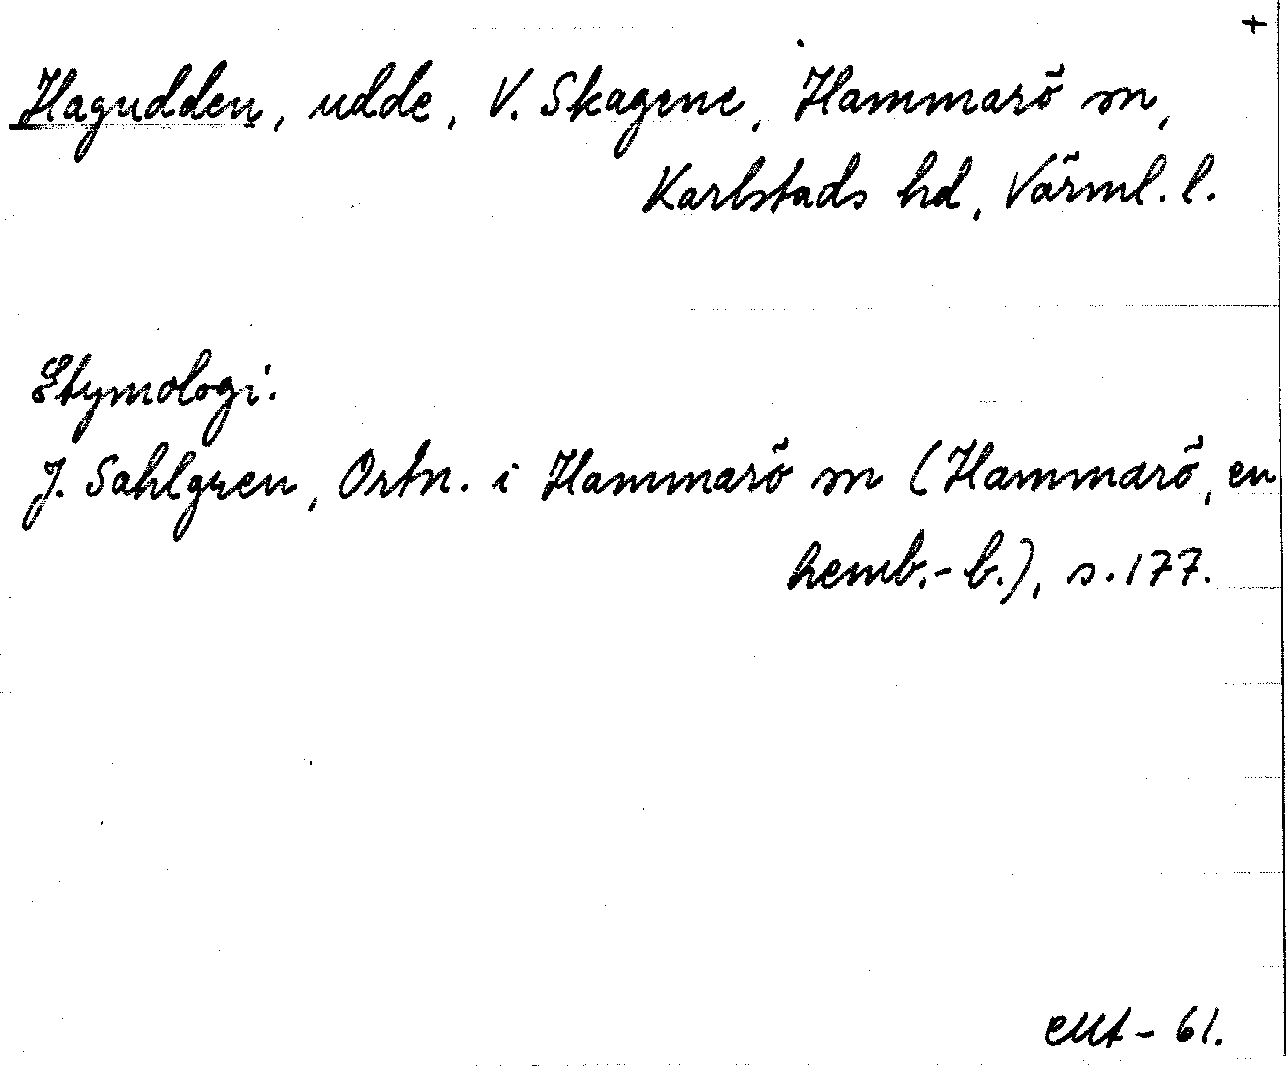 +
Hagudden, udde, V. Skagene, Hammarö sn,
Karlstads hd, Värml. l.
Etymologi.
J. Sahlgren, Ortn. i Hammarö sn (Hammarö, en
hemb.-b.), s. 177.
- 61.